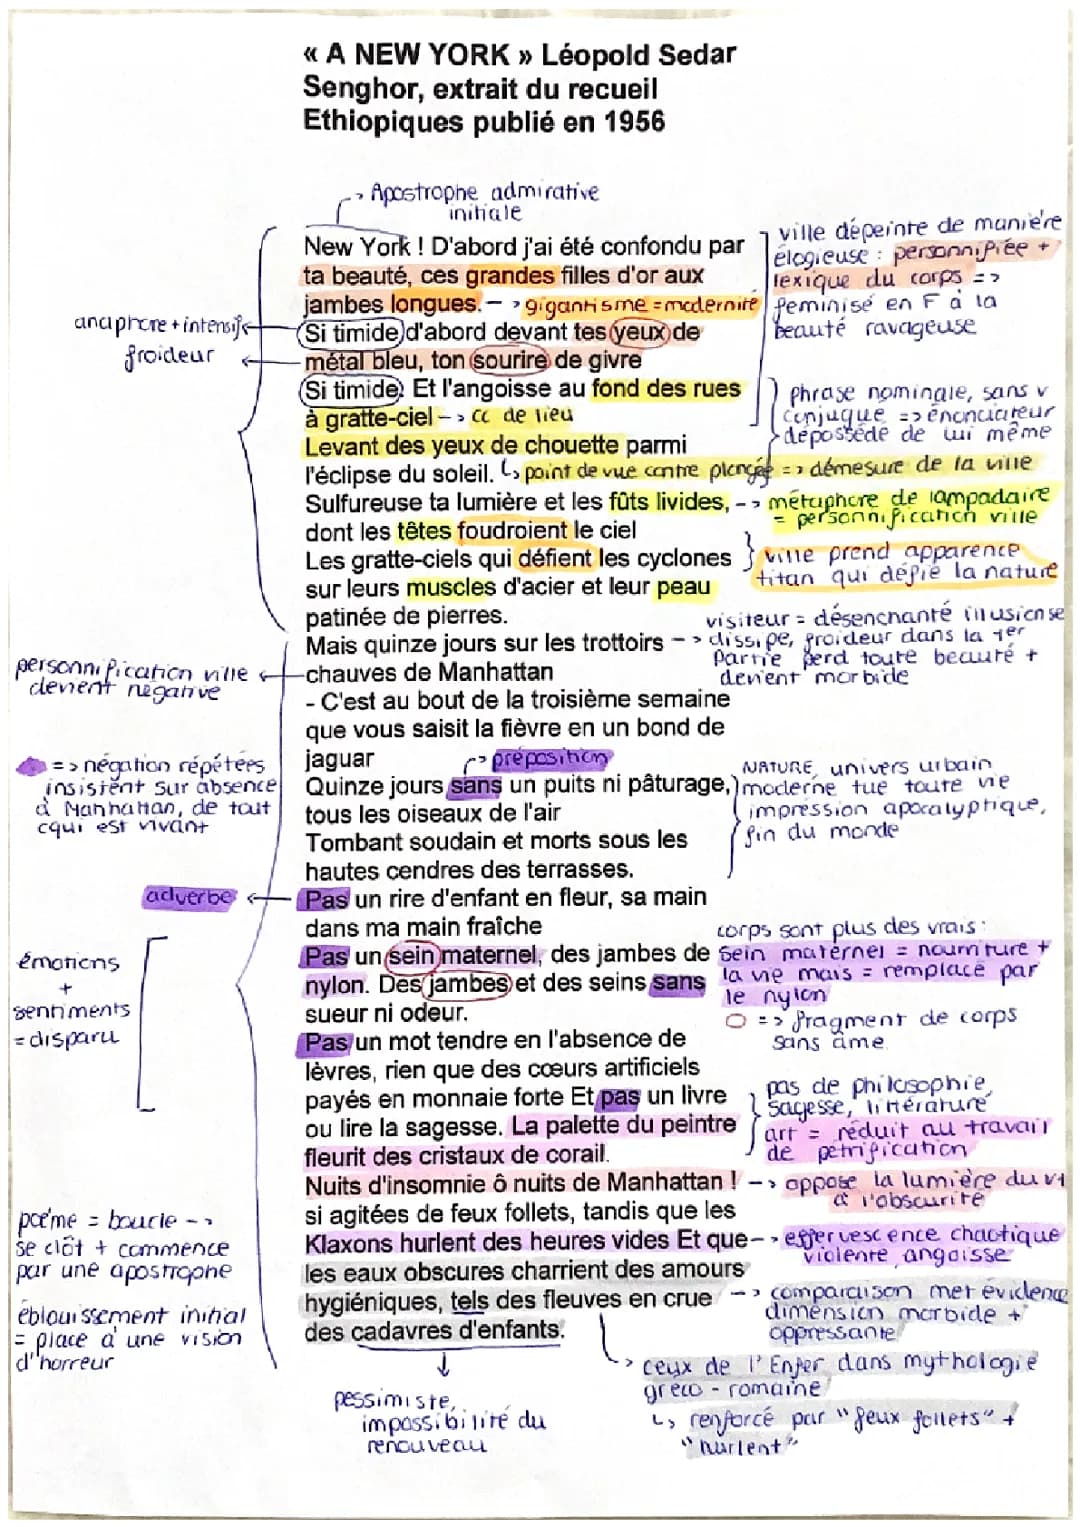 « A NEW YORK » Léopold Sedar
Senghor, extrait du recueil
Ethiopiques publié en 1956
-> Apostrophe admirative
initiale
New York ! D'abord j'ai été confondu par
ta beauté, ces grandes filles d'or aux
jambes longues. -> gigantisme = modernité
Si timide d'abord devant tes yeux de
métal bleu, ton sourire de givre
Si timide. Et l'angoisse au fond des rues
à gratte-ciel -> CC de lieu
Levant des yeux de chouette parmi
l'éclipse du soleil. ↳ point de vue contre plongée => démesure de la ville
Sulfureuse ta lumière et les fûts livides, -> métaphore de lampadaire
= personnification ville
dont les têtes foudroient le ciel
Les gratte-ciels qui défient les cyclones
sur leurs muscles d'acier et leur peau
patinée de pierres.
Mais quinze jours sur les trottoirs
chauves de Manhattan
- C'est au bout de la troisième semaine
que vous saisit la fièvre en un bond de
jaguar
-> préposition
Quinze jours sans un puits ni pâturage,
tous les oiseaux de l'air
Tombant soudain et morts sous les
hautes cendres des terrasses.
Pas un rire d'enfant en fleur, sa main
dans ma main fraîche
Pas un sein maternel, des jambes de
nylon. Des jambes et des seins sans
sueur ni odeur.
Pas un mot tendre en l'absence de
lèvres, rien que des cœurs artificiels
payés en monnaie forte Et pas un livre
ou lire la sagesse. La palette du peintre
fleurit des cristaux de corail.
Nuits d'insomnie ô nuits de Manhattan !
si agitées de feux follets, tandis que les
Klaxons hurlent des heures vides Et que
les eaux obscures charrient des amours
hygiéniques, tels des fleuves en crue
des cadavres d'enfants.
pessimiste,
impossibilité du
renouveau
anaphore + intensifs
froideur
personnification ville
devient négative
=> négation répétées
insistent sur absence
à Manhattan, de tout
cqui est vivant
adverbe
émotions
+
sentiments
= disparu
poème = boucle ->
se clôt + commence
par une apostrophe
éblouissement initial
= place à une vision
d'horreur
ville dépeinte de manière
élogieuse : personnifiée +
lexique du corps =>
féminisé en F à la
beauté ravageuse
phrase nominale, sans v
conjugué => énonciateur
dépossédé de lui même
ville prend apparence
titan qui défie la nature
visiteur = désenchanté illusion se
-> dissipe, froideur dans la 1er
Partie perd toute beauté +
devient morbide
NATURE, univers urbain
moderne tue toute vie
impression apocalyptique,
fin du monde
corps sont plus des vrais :
sein maternel = nourriture +
la vie mais = remplacé par
le nylon
=> fragment de corps
sans âme
pas de philosophie,
sagesse, littérature
art = réduit au travail
de pétrification
-> oppose la lumière du v1
à l'obscurité
-> effervescence chaotique
violente, angoisse
-> comparaison met évidence
dimension morbide +
oppressante
-> ceux de l'Enfer dans mythologie
gréco-romaine
↳ renforcé par "feux follets" +
"hurlent"